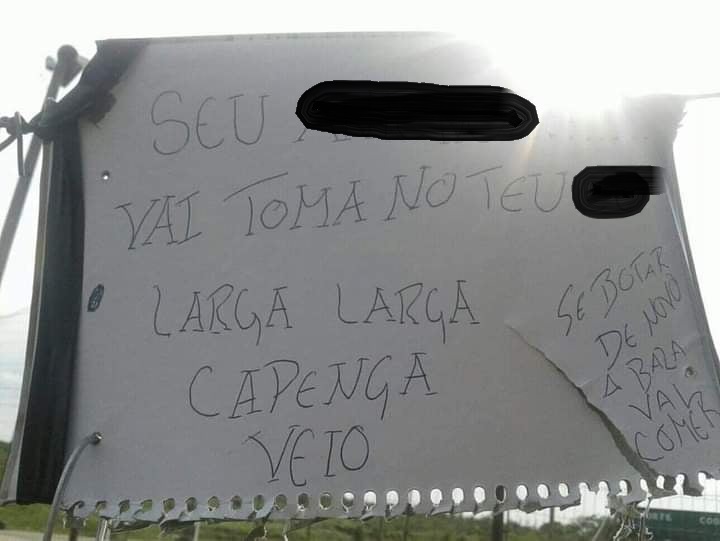 SEU
VAI TOMA NO TEU
LARGA LARGA
CAPENGA
VEIO
SE BOTAR
DE NOVO
A BALA
VAI
COMER